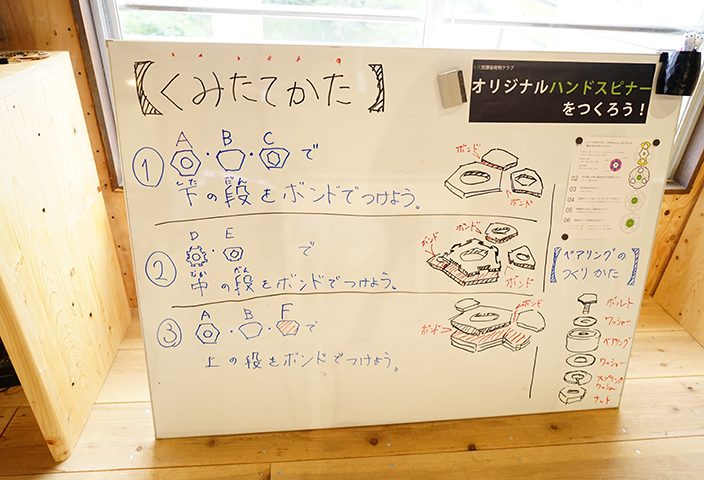 【くみたてかた】
オリジナルハンドスピナー
をつくろう！
A B C
① ・ ・ で
した だん
下の段をボンドでつけよう。
ボンド
ボンド
D E
② ・ で
なか だん
中の段をボンドでつけよう。
ボンド
ボンド
ボンド
A B F
③ ・ ・ で
上の段をボンドでつけよう。
ボンド
ボンド
02
03
04
05
06
【ベアリングの
つくりかた】
ボルト
ワッシャー
ベアリング
ワッシャー
スプリング
ワッシャー
ナット